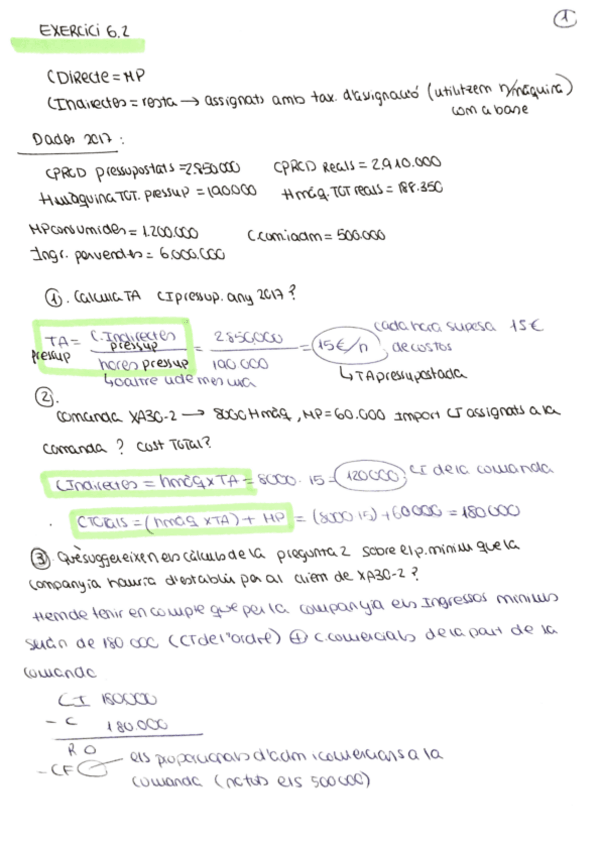 1
EXERCICI 6.2
CDirecte = MP
CIndirectes = resta → assignats amb tax. d'assignació (utilitzem n/màquina)
com a base
Dades 2017:
CPRCD pressupostats = 2.850.000 CPRCD Reals = 2.910.000
Hmàquina TOT. pressup = 190.000 Hmàq. TOT reals = 188.350
MP consumides = 1.200.000 C.com i adm = 500.000
Ingr. per vendes = 6.000.000
①. Calcula TA CI pressup. any 2017?
TA pressup = C. Indirectes pressup / hores pressup = 2850000 / 190000 = 15€/h cada hora suposa 15€
de costos
↳ o altre u de mesura ↳ TA pressupostada
②.
Comanda XA3C-2 → 8000 Hmàq, MP = 60.000 Import CI assignats a la
comanda? Cost TOTAL?
CIndirectes = hmàq x TA = 8000 · 15 = 120000; CI de la comanda
CTotals = (hmàq x TA) + MP = (8000 15) + 60000 = 180000
③. Què suggereixen els càlculs de la pregunta 2 sobre el p. mínim que la
companyia hauria d'establir per al client de XA3C-2?
Hem de tenir en compte que per la companyia els Ingressos mínims
seràn de 180 000 (CT de l'ordre) ⊕ C. comercials de la part de la
comanda
CI 180000
- C 180.000
R 0
- CF els proporcionals d'adm i comercials a la
comanda (no tots els 500000)